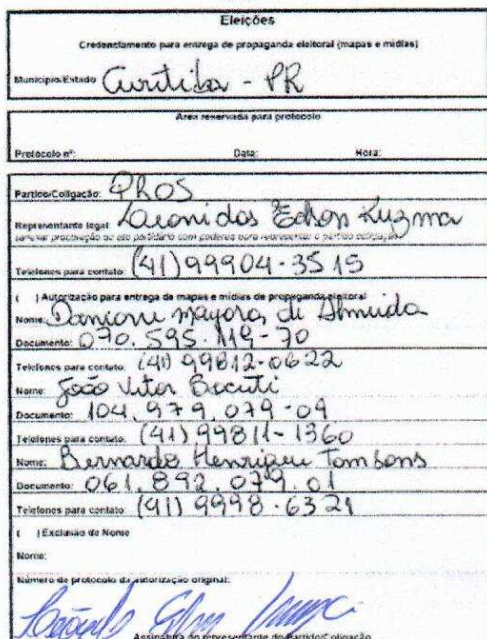 Eleições
Credenciamento para entrega de propaganda eleitoral (mapas e mídias)
Município/Estado Curitiba - PR
Área reservada para protocolo
Protocolo nº: Data: Hora:
Partido/Coligação: PROS
Representante legal Leonidas Edson Kuzma
Telefones para contato: (41) 99904-3515
( ) Autorização para entrega de mapas e mídias de propaganda eleitoral
Nome: de Almeida
Documento: 070.595.119-70
Telefones para contato: (41) 99812-0622
Nome: João Vitor
Documento: 104.979.079-09
Telefones para contato: (41) 99811-1360
Nome: Bernardo Henrique
Documento: 061.892.079.01
Telefones para contato: (41) 9998-6321
( ) Exclusão de Nome
Nome:
Número de protocolo da autorização original:
Assinatura do representante do Partido/Coligação